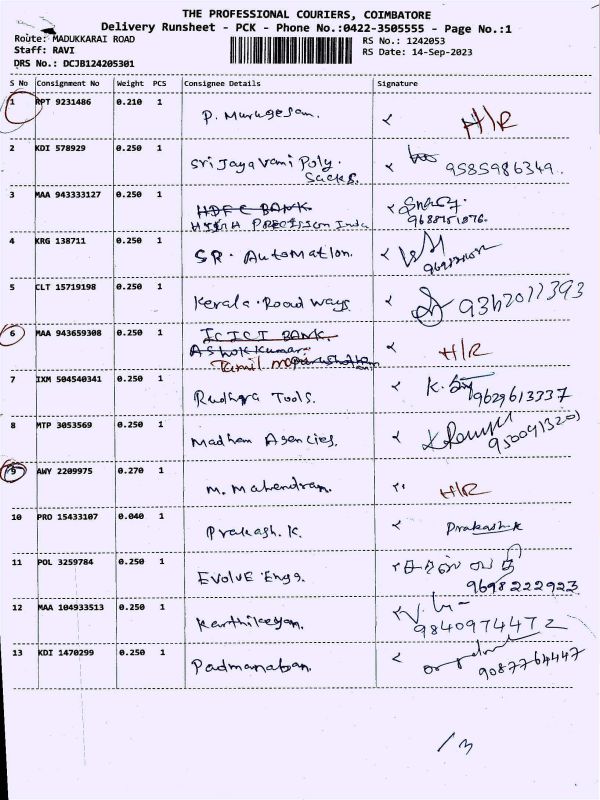 THE PROFESSIONAL COURIERS, COIMBATORE
Delivery Runsheet - PCK - Phone No.:0422-3505555 - Page No.:1
Route: MADUKKARAI ROAD
RS No.: 1242053
Staff: RAVI
RS Date: 14-Sep-2023
DRS No.: DCJB124205301
S No Consignment No Weight PCS Consignee Details Signature
1 RPT 9231486 0.210 1 P. Murugesan. H/R
2 KDI 578929 0.250 1 Sri Jaya Vani Poly. Sacks. 9585986349
3 MAA 943333127 0.250 1 HDFC BANK
PRECISION
4 KRG 138711 0.250 1 SR. Automation.
5 CLT 15719198 0.250 1 Kerala. Road Ways
6 MAA 943659308 0.250 1 ICICI BANK
Ashokkumar. H/R
Tamil
7 IXM 504540341 0.250 1 Rudhra Tools. 9629613337
8 MTP 3053569 0.250 1 Madhan Agencies.
9 AWY 2209975 0.270 1 M. Mahendran. H/R
10 PRO 15433107 0.040 1 Prakash. K. Prakash.K
11 POL 3259784 0.250 1 Evolve Engg. 9698222923
12 MAA 104933513 0.250 1 Karthikeyan. 9840974472
13 KDI 1470299 0.250 1 Padmanaban. 9087764447